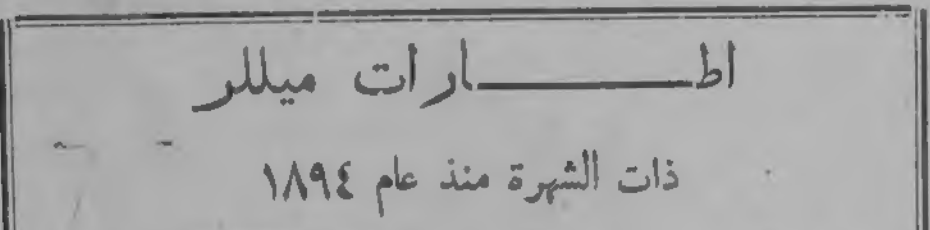 اطـــــارات ميللر
ذات الشهرة منذ عام ١٨٩٤